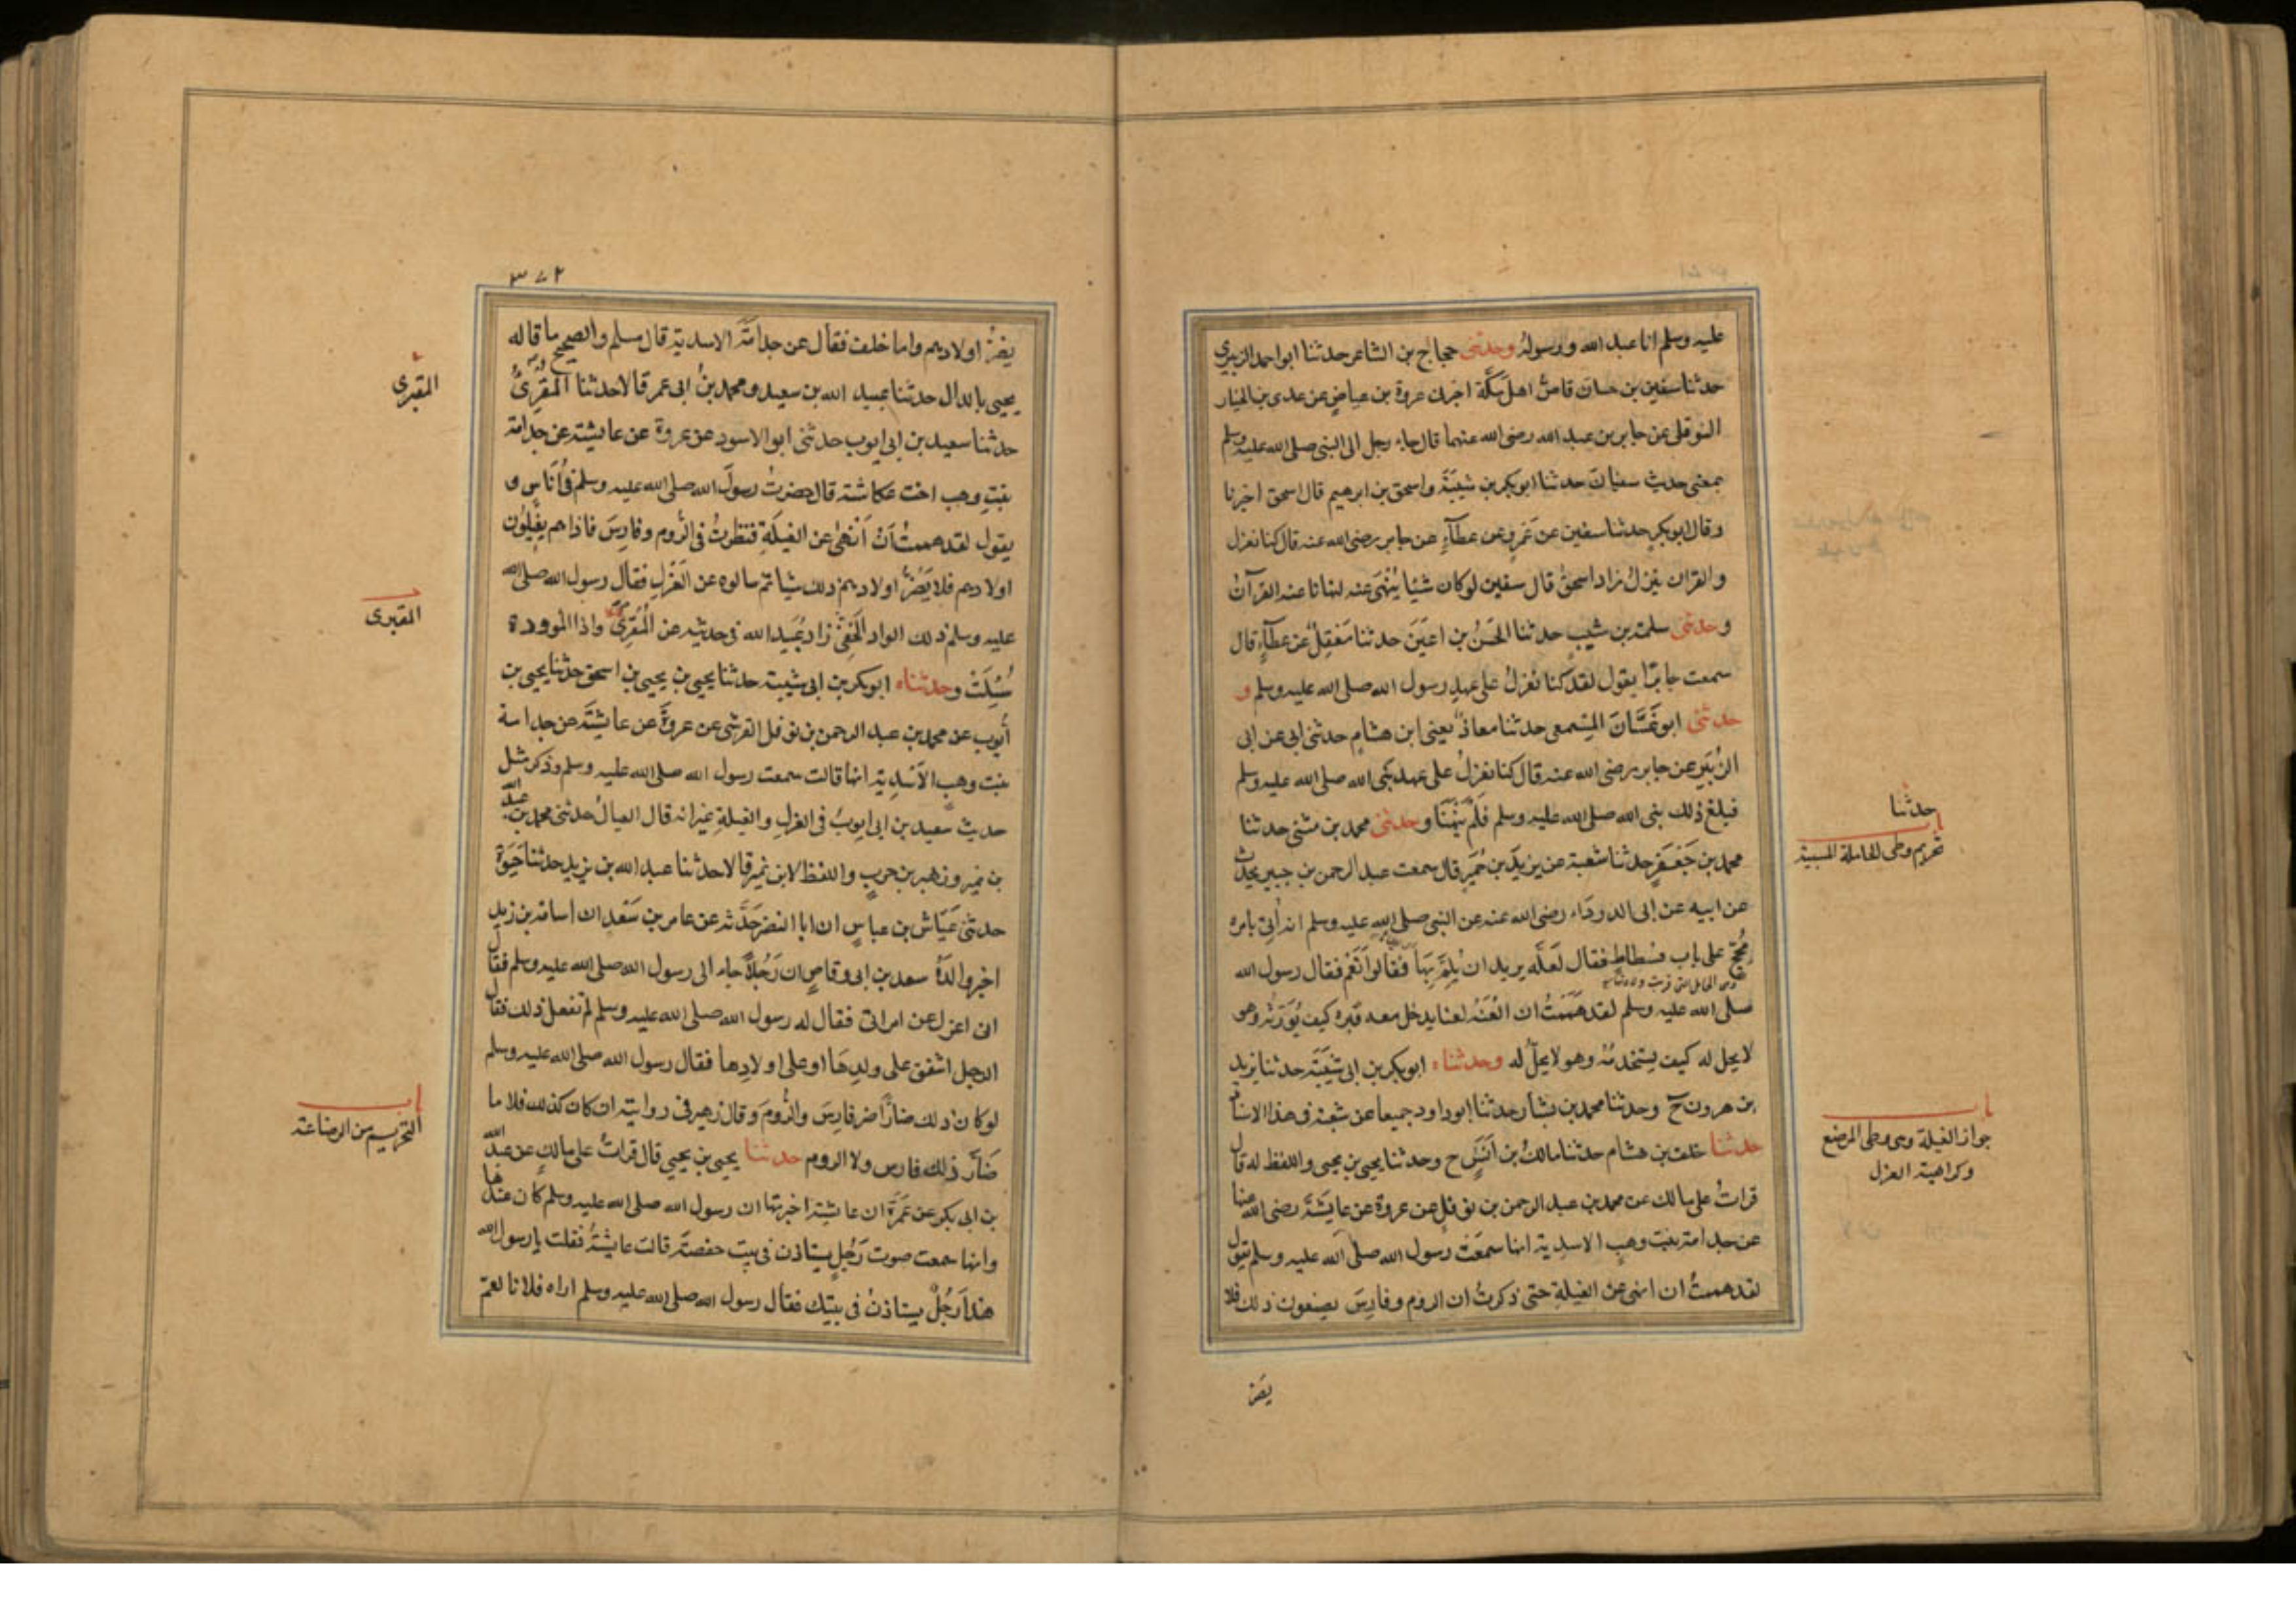 عليه وسلم انا عبد الله ورسوله وحدثنى حجاج بن الشاعر حدثنا ابواحمد الزبيرى
حدثنا سفين بن حسان قاص اهل مكة اخبرنى عروة بن عياض عن عدى بن الخيار
النوفلى عن جابر بن عبد الله رضى الله عنهما قال جاء رجل الى النبى صلى الله عليه وسلم
بمعنى حديث سفيان حدثنا ابوبكر بن شيبة واسحق بن ابرهيم قال اسحق اخبرنا
وقال ابوبكر حدثنا سفين عن عمرو عن عطاء عن جابر رضى الله عنه قال كنا نعزل
والقران ينزل زاد اسحق قال سفين لوكان شيئا ينهى عنه لنهانا عنه القرآن
وحدثنى سلمة بن شبيب حدثنا الحسن بن اعين حدثنا معقل عن عطاء قال
سمعت جابرا يقول لقد كنا نعزل على عهد رسول الله صلى الله عليه وسلم و
حدثنى ابوغسان المسمعى حدثنا معاذ يعنى ابن هشام حدثنى ابى عن ابى
الزبير عن جابر رضى الله عنه قال كنا نعزل على عهد نبى الله صلى الله عليه وسلم
فبلغ ذلك نبى الله صلى الله عليه وسلم فلم ينهنا وحدثنى محمد بن مثنى حدثنا
محمد بن جعفر حدثنا شعبة عن يزيد بن خمير قال سمعت عبد الرحمن بن جبير يحدث
عن ابيه عن ابى الدرداء رضى الله عنه عن النبى صلى الله عليه وسلم انه اتى بامرة
مجح على باب فسطاط فقال لعله يريد ان يلم بها فقالوا نعم فقال رسول الله
صلى الله عليه وسلم لقد هممت ان العنه لعنا يدخل معه قبره كيف يورثه وهو
لا يحل له كيف يستخدمه وهو لا يحل له وحدثناه ابوبكر بن ابى شيبة حدثنا يزيد
بن هرون ح وحدثنا محمد بن بشار حدثنا ابوداود جميعا عن شعبة فى هذا الاسناد
حدثنا خلف بن هشام حدثنا مالك بن انس ح وحدثنا يحيى بن يحيى واللفظ له قال
قرات على مالك عن محمد بن عبد الرحمن بن نوفل عن عروة عن عايشة رضى الله عنها
عن جدامة بنت وهب الاسدية انها سمعت رسول الله صلى الله عليه وسلم يقول
لقد هممت ان انهى عن الغيلة حتى ذكرت ان الروم وفارس يصنعون ذلك فلا
يضر
حدثنا
باب
تحريم وطى الحاملة المسبية
باب
جواز الغيلة وهى وطى المرضع
وكراهية العزل
٣٧٢
يضر اولادهم واما خلف فقال عن جذامة الاسدية قال مسلم والصحيح ما قاله
يحيى بالدال حدثنا عبيد الله بن سعيد ومحمد بن ابى عمر قالا حدثنا المقرى
حدثنا سعيد بن ابى ايوب حدثنى ابو الاسود عن عروة عن عايشة عن جدامة
بنت وهب اخت عكاشة قال حضرت رسول الله صلى الله عليه وسلم فى اناس و
يقول لقد هممت ان انهى عن الغيلة فنظرت فى الروم وفارس فاذا هم يغيلون
اولادهم فلا يضر اولادهم ذلك شيا ثم سالوه عن العزل فقال رسول الله صلى الله
عليه وسلم ذلك الواد الخفى زاد عبيد الله فى حديثه عن المقرى واذا الموودة
سئلت وحدثناه ابوبكر بن ابى شيبة حدثنا يحيى بن يحيى بن اسحق حدثنا يحيى بن
أيوب عن محمد بن عبد الرحمن بن نوفل القرشى عن عروة عن عايشة عن جدامة
بنت وهب الاسدية انها قالت سمعت رسول الله صلى الله عليه وسلم وذكر مثل
حديث سعيد بن ابى ايوب فى العزل والغيلة غير انه قال الغيال حدثنى محمد بن عبد الله
بن نمير وزهير بن حرب واللفظ لابن نمير قالا حدثنا عبد الله بن يزيد حدثنا حيوة
حدثنى عياش بن عباس ان ابا النضر حدثه عن عامر بن سعد ان اسامة بن زيد
اخبر والده سعد بن ابى وقاص ان رجلا جاء الى رسول الله صلى الله عليه وسلم فقال
انى اعزل عن امراتى فقال له رسول الله صلى الله عليه وسلم لم تفعل ذلك فقال
الرجل اشفق على ولدها او على اولادها فقال رسول الله صلى الله عليه وسلم
لوكان ذلك ضارا ضر فارس والروم وقال زهير فى روايته ان كان كذلك فلا ما
ضار ذلك فارس ولا الروم حدثنا يحيى بن يحيى قال قرات على مالك عن عبد الله
بن ابى بكر عن عمرة ان عايشة اخبرتها ان رسول الله صلى الله عليه وسلم كان عندها
وانها سمعت صوت رجل يستاذن فى بيت حفصة قالت عايشة فقلت يا رسول الله
هذا رجل يستاذن فى بيتك فقال رسول الله صلى الله عليه وسلم اراه فلانا لعم
المقبرى
المقبرى
باب
التحريم من الرضاعة